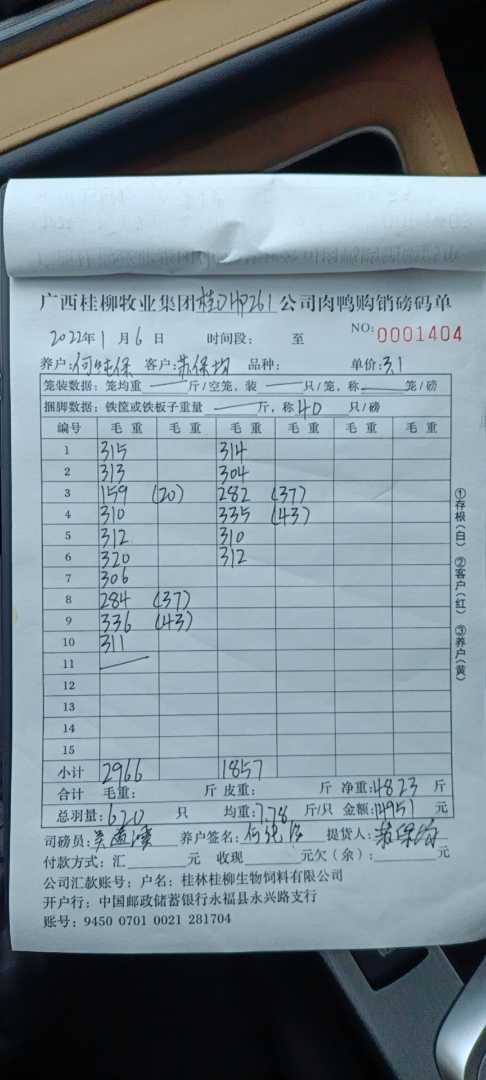 广西桂柳牧业集团桂JHP261公司肉鸭购销磅码单
2022年1月6日 时间段: 至 NO:0001404
养户:何 保 客户:苏保均 品种: 单价:3.1
笼装数据:笼均重 斤/空笼,装 只/笼,称 笼/磅
捆脚数据:铁筐或铁板子重量 斤,称40只/磅
编号 毛重 毛重 毛重 毛重 毛重
1 315 314
2 313 304
3 159 (20) 282 (37)
4 310 335 (43)
5 312 310
6 320 312
7 306
8 284 (37)
9 336 (43)
10 311
11
12
13
14
15
小计 2966 1857
合计 毛重: 斤 皮重: 斤 净重:4823斤
总羽量:620只 均重:7.78斤/只 金额:14951元
司磅员: 养户签名:何 提货人:苏保均
付款方式:汇 元 收现 元欠(余): 元
公司汇款账号:户名:桂林桂柳生物饲料有限公司
开户行:中国邮政储蓄银行永福县永兴路支行
账号:9450 0701 0021 281704
①存根(白) ②客户(红) ③养户(黄)